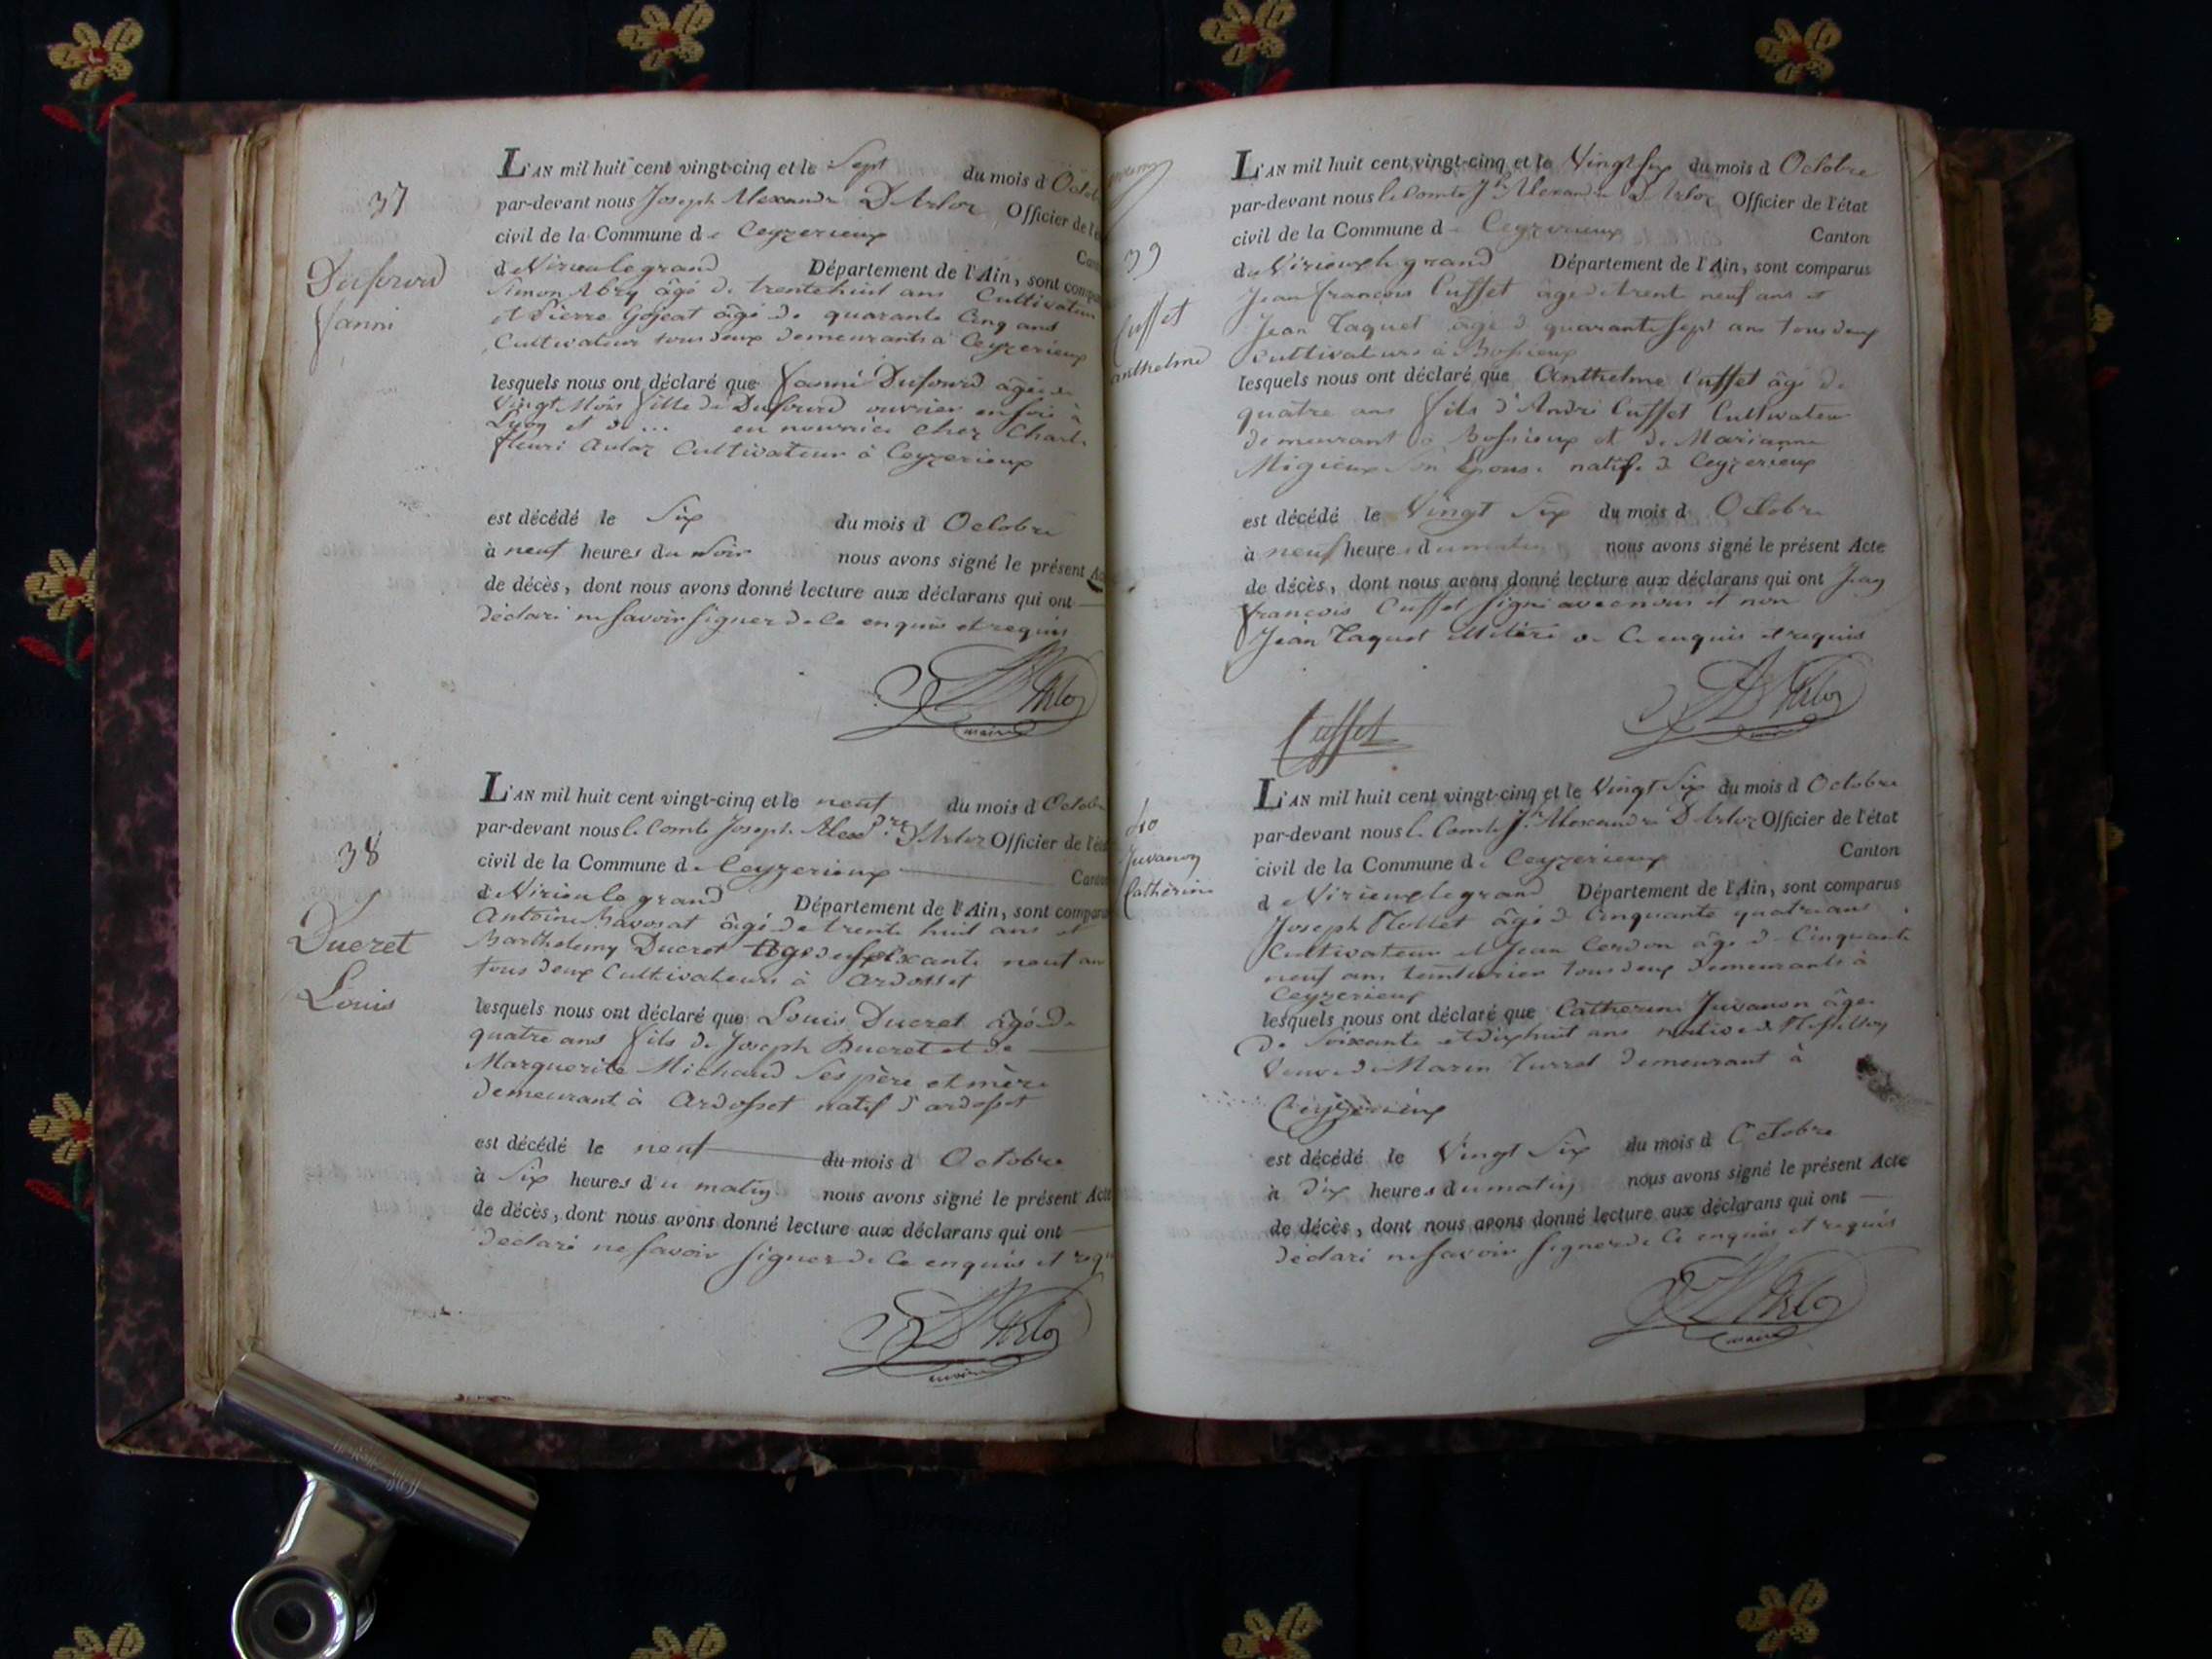 37
Dufourd
fanni
L'AN mil huit cent vingt-cinq et le Sept du mois d Octob
par-devant nous Joseph Alexandre D'Arloz Officier de l'é
civil de la Commune de Ceyzerieux Cant
de Virieu le grand Département de l'Ain, sont compa
Simon Abry âgé de trente huit ans Cultivateur
et Pierre Gojeat âgé de quarante Cinq ans
Cultivateur tous deux demeurants à Ceyzerieux
lesquels nous ont déclaré que fanni Dufourd âgée de
vingt Mois fille de Dufourd ouvrier en soie à
Lyon et de ... en nourrice chez Charle
fleuri Cultivateur à Ceyzerieux
est décédé le Six du mois d Octobre
à neuf heures du Soir nous avons signé le présent Ac
de décès, dont nous avons donné lecture aux déclarans qui ont
déclaré ne savoir signer de ce enquis et requis
D'Arloz
maire
38
Ducret
Louis
L'AN mil huit cent vingt-cinq et le neuf du mois d Octobr
par-devant nous le Comte Joseph Alexdre D'Arloz Officier de l'éta
civil de la Commune de Ceyzerieux Canton
de Virieu le grand Département de l'Ain, sont compar
Antoine Bavosat âgé de trente huit ans et
Barthelemy Ducret âgé de soixante neuf an
tous deux Cultivateurs à Ardosset
lesquels nous ont déclaré que Louis Ducret âgé de
quatre ans fils de Joseph Ducret et de
Marguerite Michaud ses père et mère
demeurant à Ardosset natif d'ardosset
est décédé le neuf du mois d Octobre
à Six heures du matin nous avons signé le présent Acte
de décès, dont nous avons donné lecture aux déclarans qui ont
déclaré ne savoir signer de ce enquis et requ
D'Arloz
maire
39
Cuffet
anthelme
L'AN mil huit cent vingt-cinq et le Vingt six du mois d Octobre
par-devant nous le Comte Jh Alexandre D'Arloz Officier de l'état
civil de la Commune de Ceyzerieux Canton
de Virieux le grand Département de l'Ain, sont comparus
Jean françois Cuffet âgé de trente neuf ans et
Jean Taquet âgé de quarante sept ans tous deux
Cultivateurs à Bossieux
lesquels nous ont déclaré que Anthelme Cuffet âgé de
quatre ans fils d'André Cuffet Cultivateur
demeurant à Bossieux et de Marianne
Migieux son Epouse natif de Ceyzerieux
est décédé le Vingt Six du mois d Octobre
à neuf heures du matin nous avons signé le présent Acte
de décès, dont nous avons donné lecture aux déclarans qui ont Jean
françois Cuffet signé avec nous et non
Jean Taquet illitéré de Ce enquis et requis
D'Arloz
Cuffet
40
Juvanon
Catherine
L'AN mil huit cent vingt-cinq et le Vingt Six du mois d Octobre
par-devant nous le Comte Jh Alexandre D'Arloz Officier de l'état
civil de la Commune de Ceyzerieux Canton
de Virieux le grand Département de l'Ain, sont comparus
Joseph Mollet âgé de Cinquante quatre ans
Cultivateur et Jean Cerdon âgé de Cinquante
neuf ans teinturier tous deux demeurants à
Ceyzerieux
lesquels nous ont déclaré que Catherine Juvanon âgée
De Soixante et dix huit ans native de
Veuve de Marin Curret demeurant à
Ceyzerieux
est décédé le Vingt Six du mois d Octobre
à dix heures du matin nous avons signé le présent Acte
de décès, dont nous avons donné lecture aux déclarans qui ont
déclaré ne savoir signer de Ce enquis et requis
D'Arloz
maire